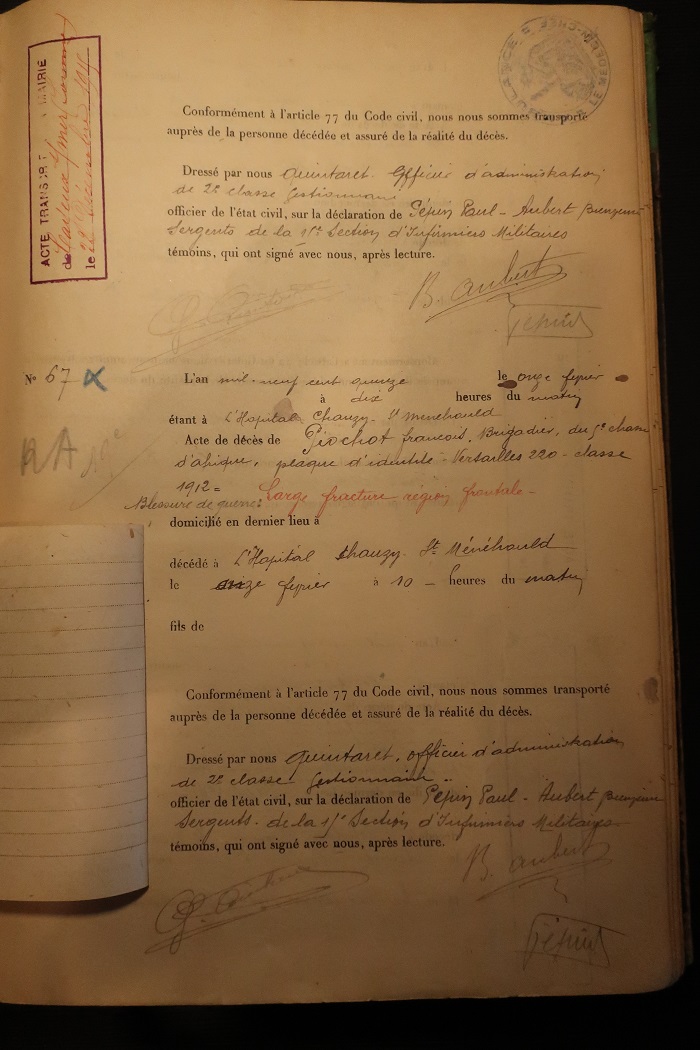 ACTE TRANSCR MAIRIE
de
le 22 décembre
Conformément à l'article 77 du Code civil, nous nous sommes transporté
auprès de la personne décédée et assuré de la réalité du décès.
Dressé par nous Quintaret. Officier d'administration
de 2e classe gestionnaire
officier de l'état civil, sur la déclaration de Pépin Paul - Aubert
Sergents de la Section d'Infirmiers Militaires
témoins, qui ont signé avec nous, après lecture.
B. Aubert
Pépin
No 67
L'an mil-neuf cent quinze le onze février
à dix heures du matin
étant à L'Hopital Chanzy. St Ménéhould
Acte de décès de Piochot françois. Brigadier, du 5e chass
d'afrique, plaque d'identité - Versailles 220 - classe
1912 =
Blessure de guerre: Large fracture région frontale -
domicilié en dernier lieu à
décédé à L'Hopital Chanzy St Ménéhould
le onze février à 10 - heures du matin
fils de
Conformément à l'article 77 du Code civil, nous nous sommes transporté
auprès de la personne décédée et assuré de la réalité du décès.
Dressé par nous Quintaret, officier d'administration
de 2e classe Gestionnaire
officier de l'état civil, sur la déclaration de Pépin Paul - Aubert
Sergents - de la Section d'Infirmiers Militaires
témoins, qui ont signé avec nous, après lecture.
B. Aubert
Pépin